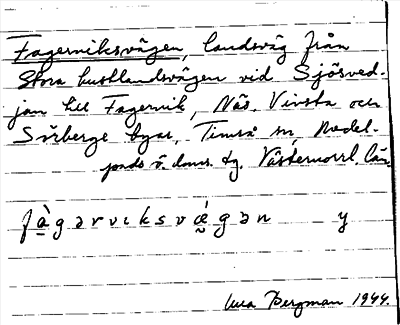 Fagerniksvägen, landsväg från
Stora kustlandsvägen vid Sjösved-
jan till Fagernik, Näs, Vivsta och
Sörberge byar, Timrå sn, Medel-
pads ö. doms. tg. Västernorrl. län.
fàgərvıksvǽgən y
Bergman 1944.